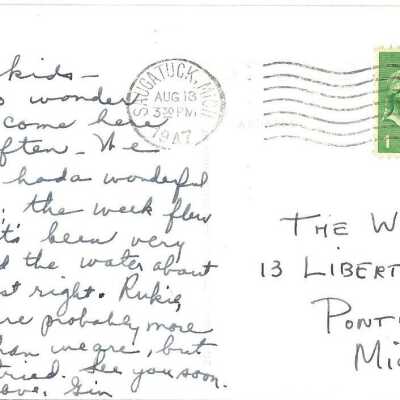 kids-
wonder
come here
often. We
had a wonderful
; the week flew
t's been very
d the water about
st right. Rukie,
re probably more
han we are, but
tried. See you soon.
ove, Gin
SAUGATUCK, MICH
AUG 13
3 30 PM
1947
1
THE W
13 LIBERT
PONT
MI